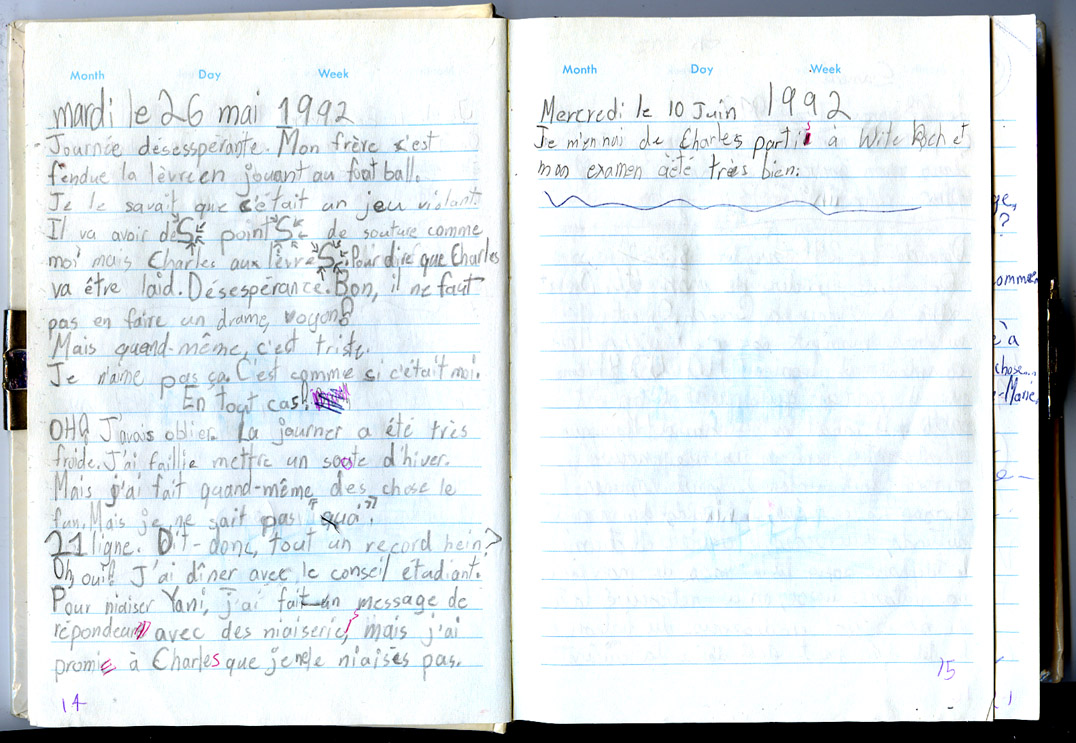 Month Day Week
mardi le 26 mai 1992
Journée désesspérante. Mon frère c'est
fendue la lèvre en jouant au football.
Je le savait que c'était un jeu violant.
Il va avoir deS pointS de souture comme
moi mais Charles aux lèvreS. Pour dire que Charles
va être laid. Désespérance. Bon, il ne faut
pas en faire un drame, voyons!
Mais quand-même, c'est triste.
Je n'aime pas ça. C'est comme si c'était moi.
En tout cas!
OH! J'avais oblier. La journer a été très
froide. J'ai faillie mettre un soute d'hiver.
Mais j'ai fait quand-même des chose le
fun. Mais je ne sait pas "quoi".
21 ligne. Dit-donc, tout un record hein?
Oh oui! J'ai dîner avec le conseil étudiant.
Pour niaiser Yani, j'ai fait un message de
répondeur avec des niaiserie, mais j'ai
promis à Charles que je ne le niaisès pas.
14
Month Day Week
Mercredi le 10 Juin 1992
Je m'ennui de Charles parti à Wite Roch et
mon examen a été très bien.
15
ge,
?
ommen
à
chose...
-Marie,